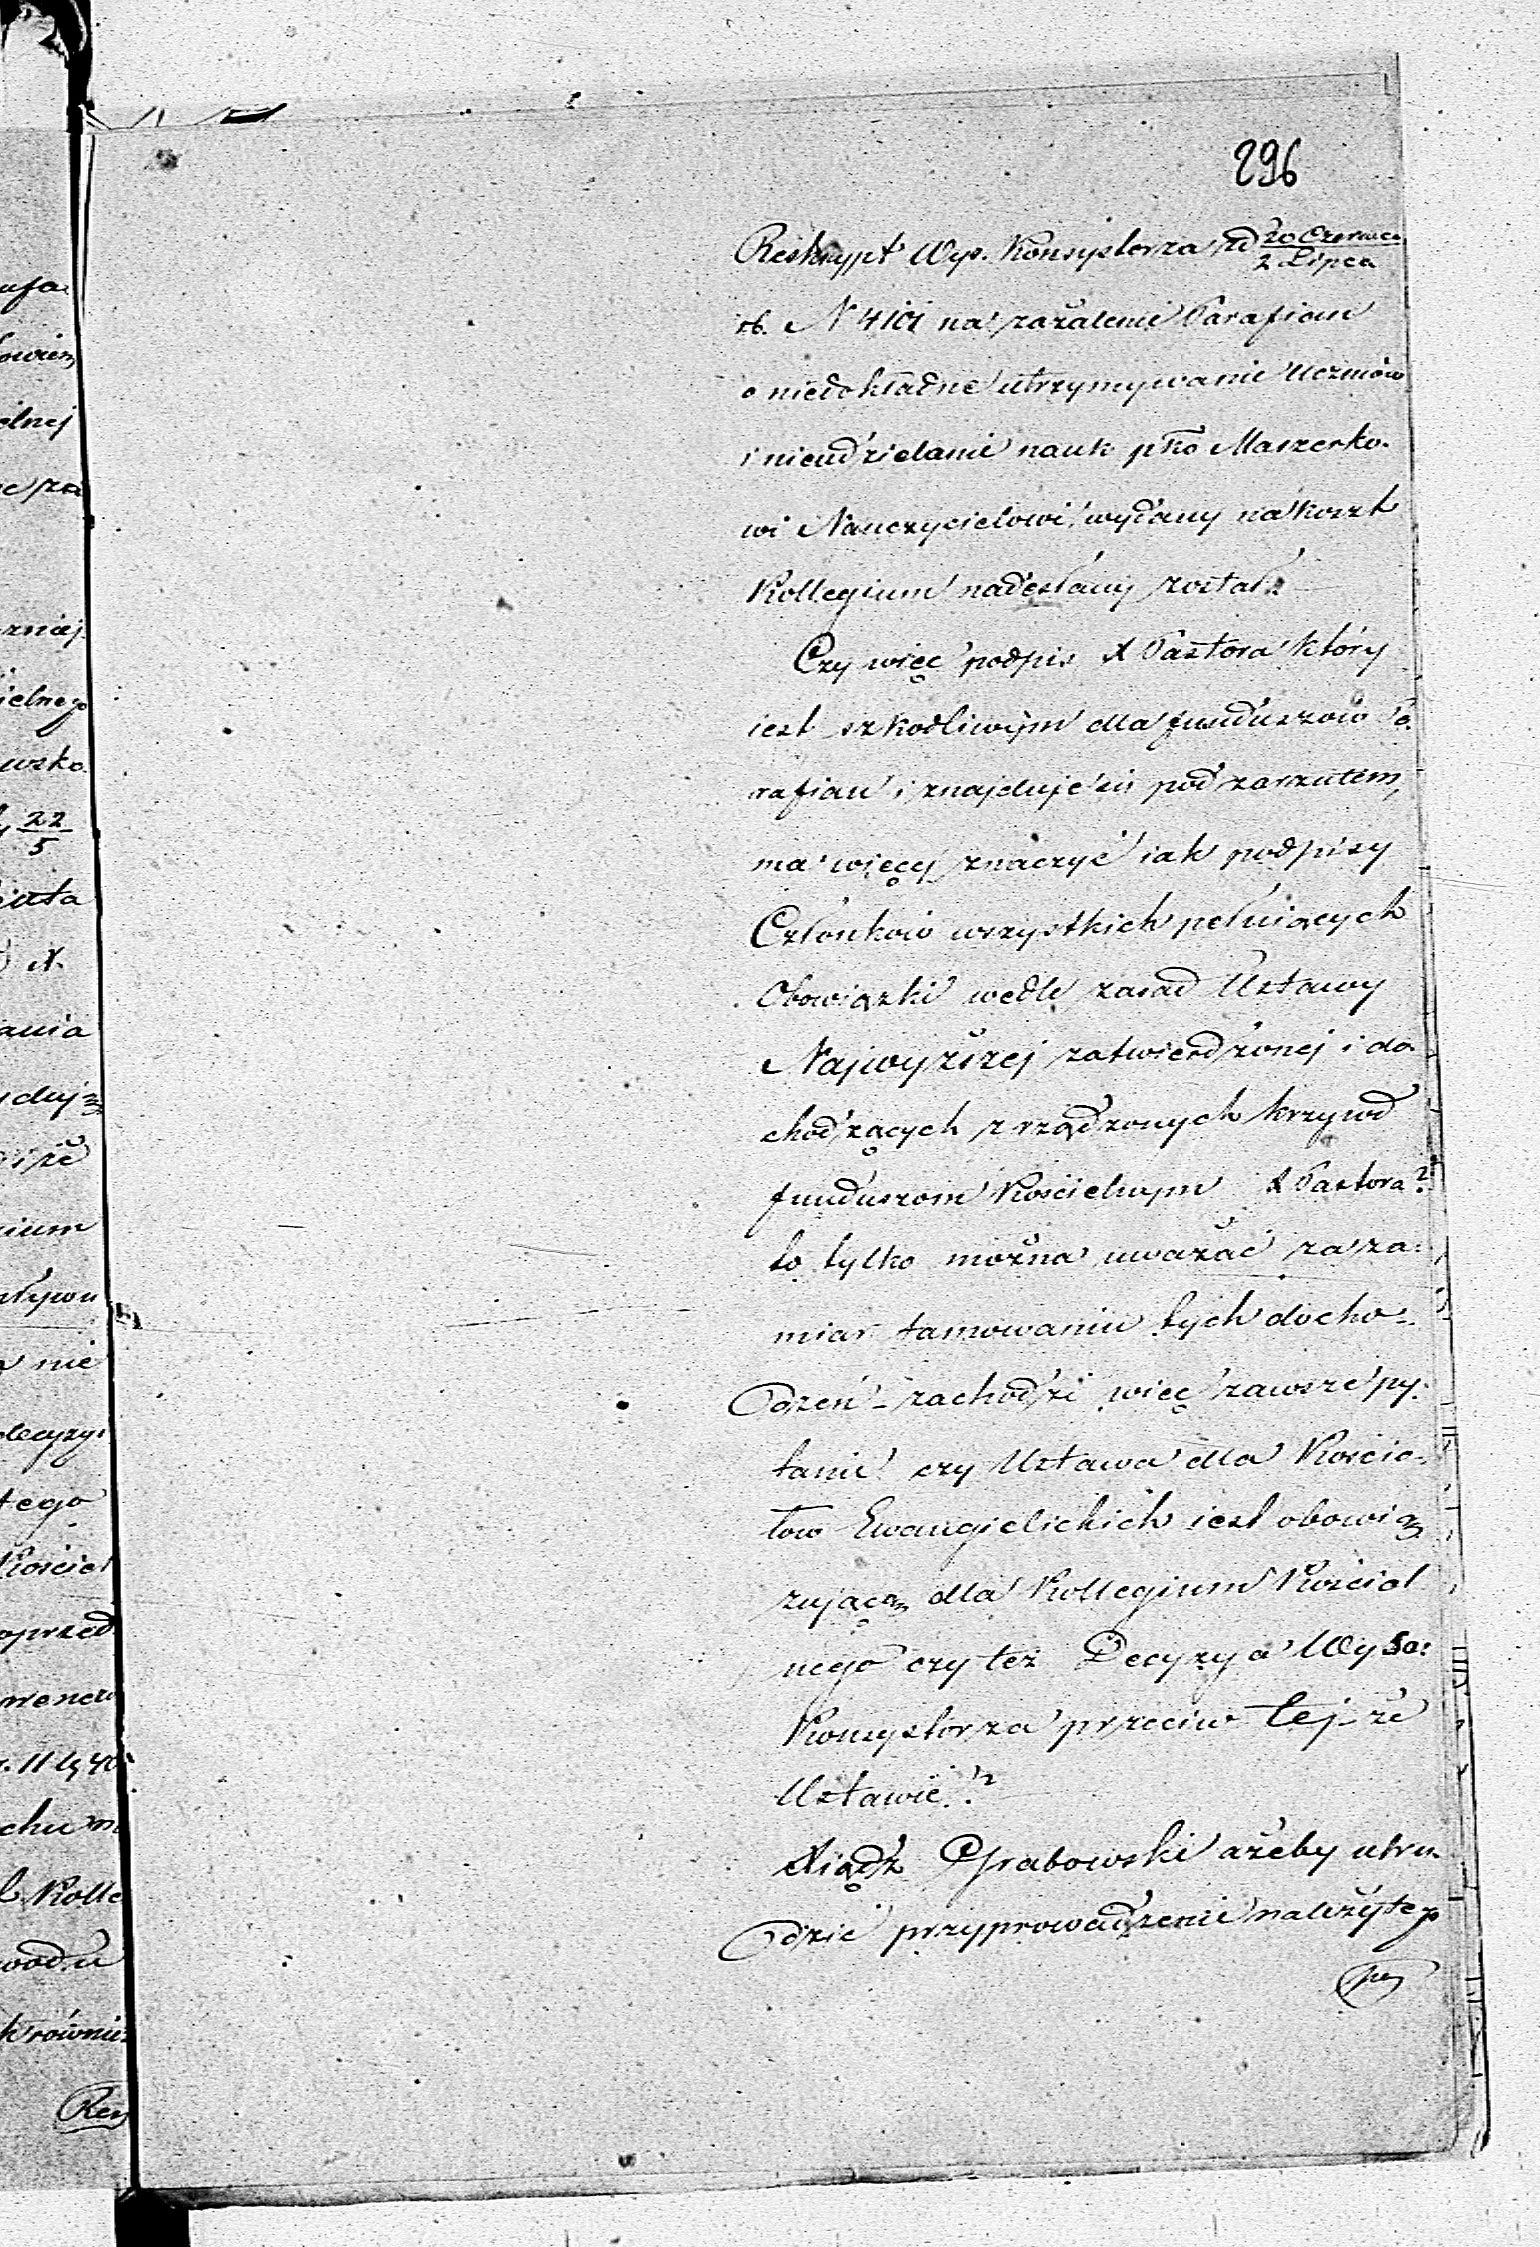 296
Reskrypt Wys. Konsystorza z d 20 Czerwca
2 Lipca
rb. N 4101 na zażalenie Parafian
o niedokładne utrzymywanie Uczniów
i nieudzielanie nauk pko Maszerko-
wi Nauczycielowi wydany na koszt
Kollegium nadesłany został.
Czy więc podpis X Pastora który
iest szkodliwym dla funduszów Pa-
rafian i znajduje się pod zarzutem,
ma więcy znaczyć iak podpisy
Członków wszystkich pełniących
Obowiązki wedle zasad Ustawy
Najwyższej zatwierdzonej i do-
chodzących zrządzonych krzywd
funduszom Kościelnym X Pastora?
to tylko można uważać za za-
miar tamowania tych docho-
dzeń - zachodzi więc zawsze py-
tanie czy Ustawa dla Kościo-
łów Ewangielickich iest obowią-
zującą dla Kollegium Kościel
nego czy też Decyzya Wyso:
Konsystorza przeciw tej-że
Ustawie?
Xiądz Grabowski ażeby utru-
dzić przyprowadzenie należytego
ufa
elnej
ielnego
wsko
22
5
X.
ania
że
nie
tego
Kościel
11
Kolle
równie